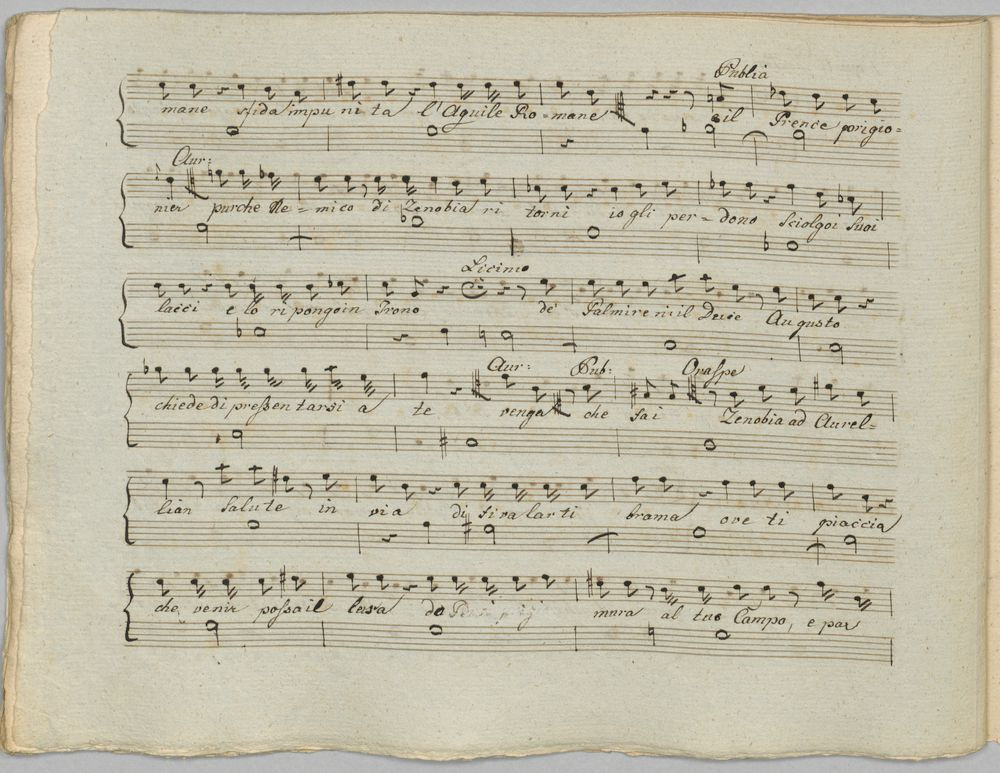 Publia
mane sfida impunita l'Aquile Romane e il Prence prigio=
Aur:
nier purche Ne=mico di Zenobia ritorni io gli per=dono sciolgo i suoi
Licinio
lacci e lo ripongo in Trono de Palmireni il Duce Augusto
Aur: Pub: Oraspe
chiede di pressentarsi a te venga che fai Zenobia ad Aurel=
lian salute invia di sivalarti brama ove ti piaccia
che venir possa il lassa da mura al tuo Campo, e par